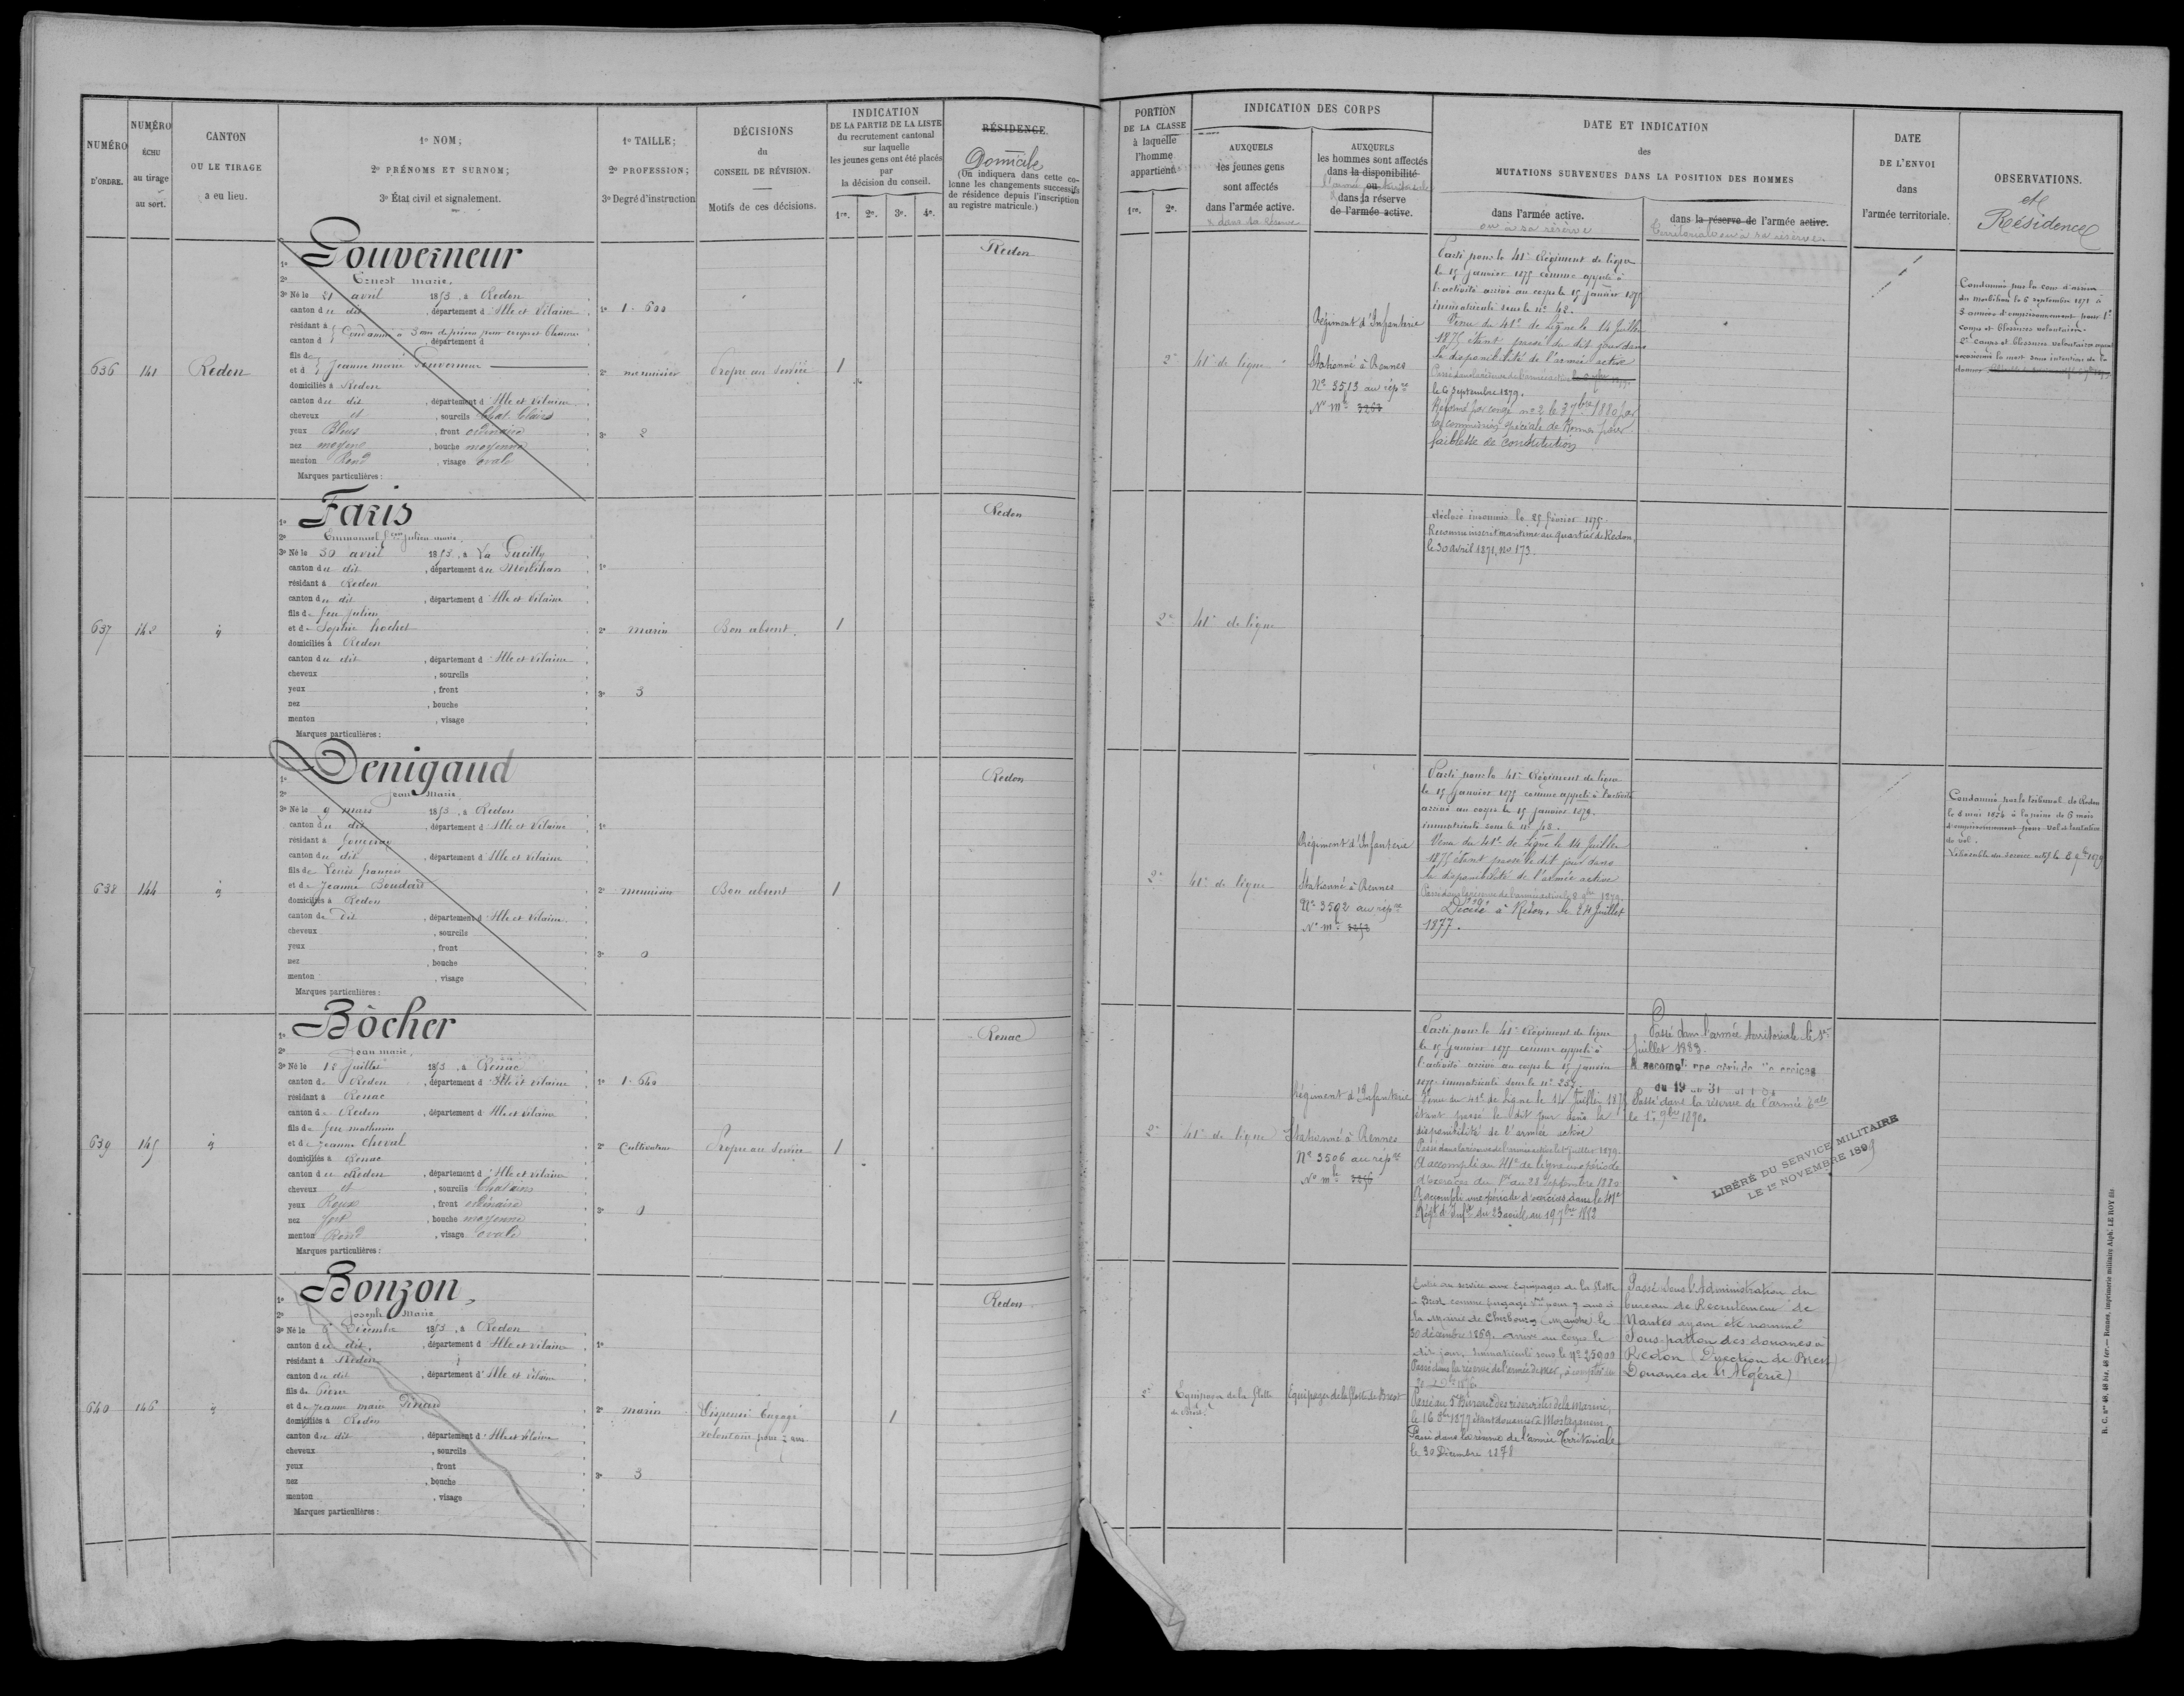 NUMÉRO
D'ORDRE.
NUMÉRO
ÉCHU
au tirage
au sort.
CANTON
OU LE TIRAGE
a eu lieu.
1º NOM;
2º PRÉNOMS ET SURNOM;
3º État civil et signalement.
1º TAILLE;
2º PROFESSION;
3º Degré d'instruction
DÉCISIONS
du
CONSEIL DE RÉVISION.
Motifs de ces décisions.
INDICATION
DE LA PARTIE DE LA LISTE
du recrutement cantonal
sur laquelle
les jeunes gens ont été placés
par
la décision du conseil.
1re. 2e. 3e. 4e.
RÉSIDENCE.
Domicile
(On indiquera dans cette co-
lonne les changements successifs
de résidence depuis l'inscription
au registre matricule.)
636
141
Redon
1º Gouverneur
2º Ernest marie.
3º Né le 21 avril 1853, à Redon
canton du dit, département d'Ille et Vilaine
résidant à
canton d , département d
fils de
et d Jeanne marie Gouverneur
domiciliés à Redon
canton du dit, département d'Ille et Vilaine
cheveux et, sourcils Chat. Clairs
yeux Bleus, front ordinaire
nez moyen, bouche moyenne
menton Rond, visage ovale
Marques particulières :
1º 1. 600
2º menuisier
3º 2
Propre au service
1
Redon
637
142
1º Faris
2º Emmanuel Julien marie.
3º Né le 30 avril 1853, à La Gacilly
canton du dit, département du Morbihan
résidant à Redon
canton du dit, département d'Ille et Vilaine
fils de feu Julien
et de Sophie hochet
domiciliés à Redon
canton du dit, département d'Ille et Vilaine
cheveux , sourcils
yeux , front
nez , bouche
menton , visage
Marques particulières :
1º
2º marin
3º 3
Bon absent.
1
Redon
638
144
1º Denigaud
2º Jean Marie
3º Né le 9 mars 1853, à Redon
canton du dit, département d'Ille et Vilaine
résidant à
canton du dit, département d'Ille et Vilaine
fils de Louis françois
et de Jeanne Boudard
domiciliés à Redon
canton du dit, département d'Ille et Vilaine.
cheveux , sourcils
yeux , front
nez , bouche
menton , visage
Marques particulières :
1º
2º menuisier
3º 0
Bon absent
1
Redon
639
145
1º Bôcher
2º Jean marie.
3º Né le Juillet 1853, à Renac
canton de Redon, département d'Ille et Vilaine
résidant à Renac
canton de Redon, département d'Ille et Vilaine
fils de feu mathurin
et de Jeanne Cheval
domiciliés à Renac
canton de Redon, département d'Ille et Vilaine
cheveux et, sourcils Chatains
yeux Roux, front ordinaire
nez fort, bouche moyenne
menton Rond, visage ovale
Marques particulières :
1º 1. 640
2º Cultivateur
3º 0
Propre au service
1
Renac
640
146
1º Bonzon,
2º Joseph Marie
3º Né le Décembre 1853, à Redon
canton du dit, département d'Ille et Vilaine
résidant à Redon
canton du dit, département d'Ille et Vilaine
fils de Pierre
et de Jeanne marie Dinard
domiciliés à Redon
canton du dit, département d'Ille et Vilaine
cheveux , sourcils
yeux , front
nez , bouche
menton , visage
Marques particulières :
1º
2º marin
3º 3
Dispensé Engagé
volontaire pour 7 ans
1
Redon
PORTION
DE LA CLASSE
à laquelle
l'homme
appartient
1re. 2e.
INDICATION DES CORPS
AUXQUELS
les jeunes gens
sont affectés
dans l'armée active.
& dans sa réserve
AUXQUELS
les hommes sont affectés
dans la disponibilité
ou
l'armée territoriale
& dans la réserve
de l'armée active.
DATE ET INDICATION
des
MUTATIONS SURVENUES DANS LA POSITION DES HOMMES
dans l'armée active.
ou à sa réserve
dans la réserve de l'armée active.
territoriale ou à sa réserve.
DATE
DE L'ENVOI
dans
l'armée territoriale.
OBSERVATIONS.
et
Résidence
2e
41e de ligne
Régiment d'Infanterie
Stationné à Rennes
Nº 3513 au rép re
Nº m le 3263
Parti pour le 41e Régiment de ligne
le 15 Janvier 1875 comme appelé à
l'activité arrivé au corps le 15 janvier 1875
immatriculé sous le nº 42.
Venu du 41e de ligne le 14 Juillet
1875 étant passé du dit jour dans
la disponibilité de l'armée active
le 6 Septembre 1879.
Réformé par congé nº 2 le 3 7bre 1880 par
la commission spéciale de Rennes pour
faiblesse de constitution
Condamné par la cour d'assises
du morbihan le 6 septembre 1871 à
5 années d'emprisonnement pour 1º
coups et blessures volontaires.
2º coups et blessures volontaires ayant
occasionné la mort sans intention de la
donner
2e
41e de ligne
déclaré insoumis le 25 février 1875.
Reconnu inscrit maritime au quartier de Redon,
le 30 avril 1871, no 173.
2e
41e de ligne
Régiment d'Infanterie
Stationné à Rennes
Nº 3592 au rép re
Nº m le
Parti pour le 41e Régiment de ligne
le 15 Janvier 1875 comme appelé à l'activité
arrivé au corps le 15 janvier 1875.
immatriculé sous le nº 48.
Venu du 41e de Ligne le 14 Juillet
1875 étant passé le dit jour dans
la disponibilité de l'armée active
Décédé à Redon, le 24 Juillet
1877.
Condamné par le tribunal de Redon
le 8 mai 1874 à la peine de 6 mois
d'emprisonnement pour vol et tentative
de vol.
Libérable du service actif le 8 9bre 1879
2e
41e de ligne
Régiment d'Infanterie
Stationné à Rennes
Nº 3506 au rép re
Nº m le 3256
Parti pour le 41e Régiment de ligne
le 15 Janvier 1875 comme appelé à
l'activité arrivé au corps le 15 janvier
1875 immatriculé sous le nº 257.
Venu du 41e de Ligne le 14 Juillet 1875
étant passé le dit jour dans la
disponibilité de l'armée active
Passé dans la réserve de l'armée active le 1er Juillet 1879.
A accompli au 41e de ligne une période
d'exercices du 1er au 28 Septembre 1880
A accompli une période d'exercices dans le 41e
Régt d'Infie du 23 août au 19 7bre 1882
Passé dans l'armée territoriale le 1er
Juillet 1883.
A accompli une période d'exercices
du 19 au 31
Passé dans la réserve de l'armée tale
le 1er 9bre 1890.
LIBÉRÉ DU SERVICE MILITAIRE
LE 1er NOVEMBRE 1899
2e
Equipages de la flotte
de Brest.
Equipages de la flotte de Brest
Entré au service aux Equipages de la flotte
à Brest comme Engagé vre pour 7 ans à
la Mairie de Cherbourg (Manche) le
30 décembre 1869. arrivé au corps le
dit jour, immatriculé sous le nº 25900
Passé dans la réserve de l'armée de mer, à compter du
Passé au 5e Bureau des réservistes de la marine,
le 16 8bre 1877 étant douanier à Mostaganem.
Passé dans la réserve de l'armée Territoriale
le 30 Décembre 1878
Passé sous l'Administration du
bureau de Recrutement de
Nantes ayant été nommé
Sous-patron des douanes à
Redon (Direction de Brest)
Douanes de l'Algérie)
R. C. nos 48, 48 bis, 48 ter. — Rennes, imprimerie militaire Alph. LE ROY fils